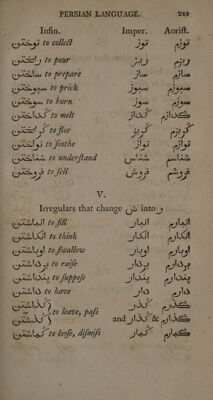 PERSIAN LANGUAGE. 249
Infin. Imper. Aorist.
توختن to collect توز توزم
ريختن to pour ريز ريزم
ساختن to prepare ساز سازم
سپوختن to prick سپوز سپوزم
سوختن to burn سوز سوزم
كداختن to melt كداز كدازم
كريختن to flee كريز كريزم
نواختن to soothe نواز نوازم
شناختن to understand شناس شناسم
فروختن to sell فروش فروشم
V.
Irregulars that change ش into ر
انباشتن to fill انبار انبارم
انكاشتن to think انكار انكارم
اوباشتن to swallow اوبار اوبارم
برداشتن to raise بردار بردارم
پنداشتن to suppose پندار پندارم
داشتن to have دار دارم
كذاشتن
or to leave, pass
كذشتن
كذر كذرم
and كذار & كذارم
كماشتن to loose, dismiss كمار كمارم